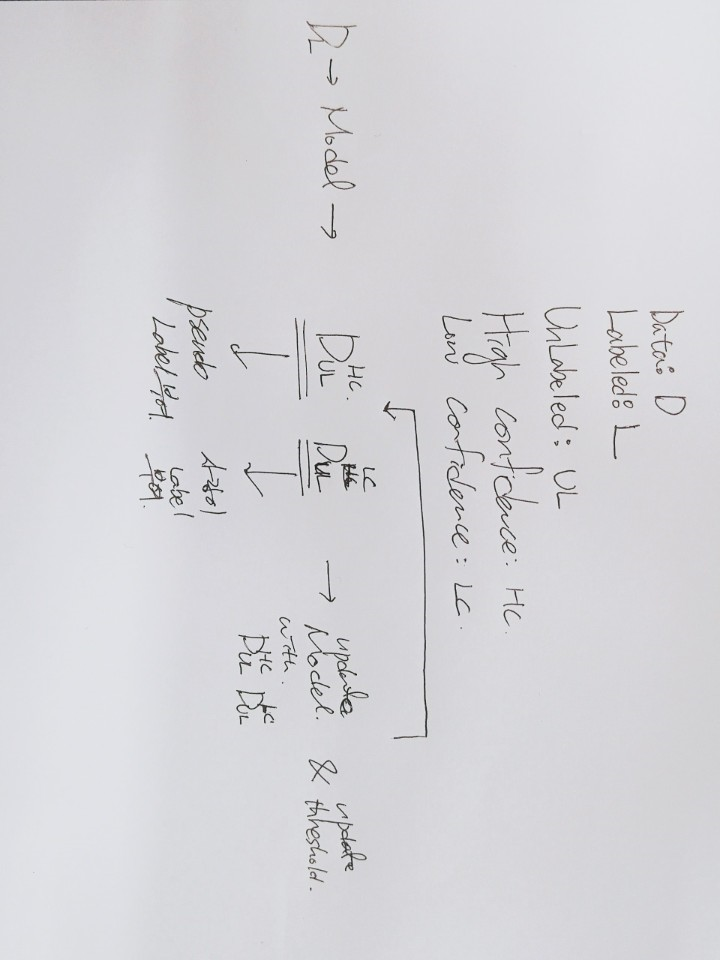 Data: D
Labeled: L
UnLabeled: UL
High confidence: HC.
Low confidence: LC.
D_L → Model →
D_UL^HC.
D_UL^LC
→ update
Model.
with.
D_UL^HC D_UL^LC
& update
threshold.
↓
pseudo
Label
↓
Label